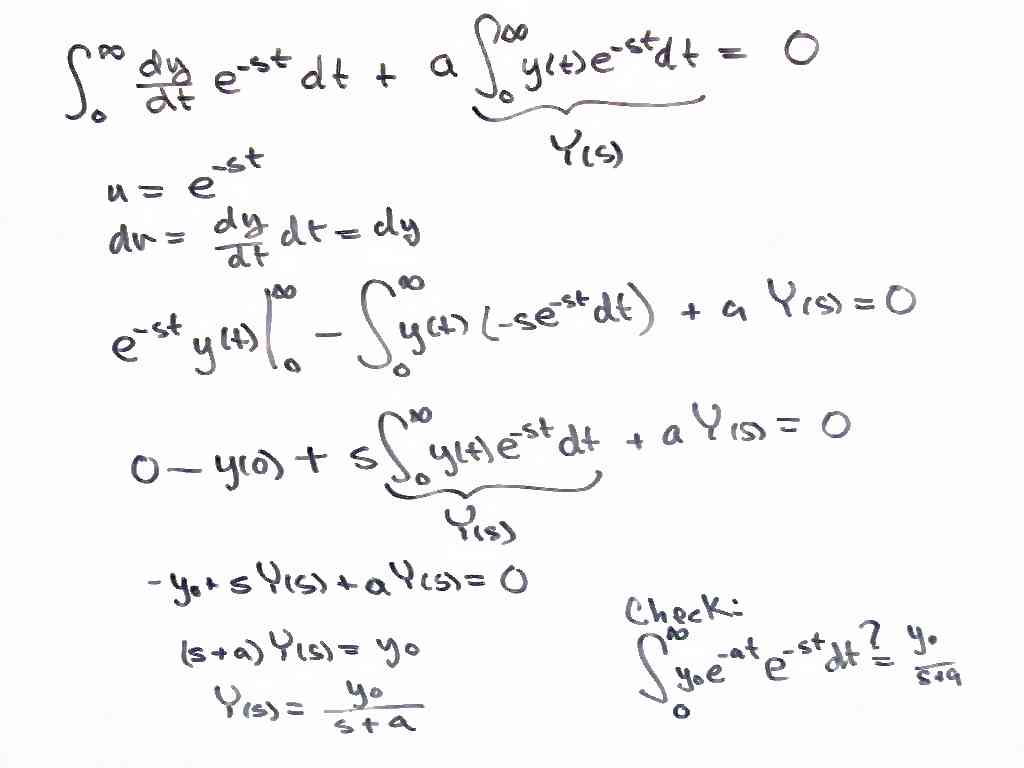 ∫₀^∞ dy/dt e^{-st} dt + a ∫₀^∞ y(t)e^{-st}dt = 0
Y(s)
u = e^{-st}
dv = dy/dt dt = dy
e^{-st} y(t)|₀^∞ - ∫₀^∞ y(t) (-se^{-st}dt) + a Y(s) = 0
0 - y(0) + s∫₀^∞ y(t)e^{-st}dt + a Y(s) = 0
Y(s)
-y₀ + sY(s) + aY(s) = 0
(s+a) Y(s) = y₀
Y(s) = y₀/(s+a)
Check:
∫₀^∞ y₀e^{-at} e^{-st}dt ?= y₀/(s+a)